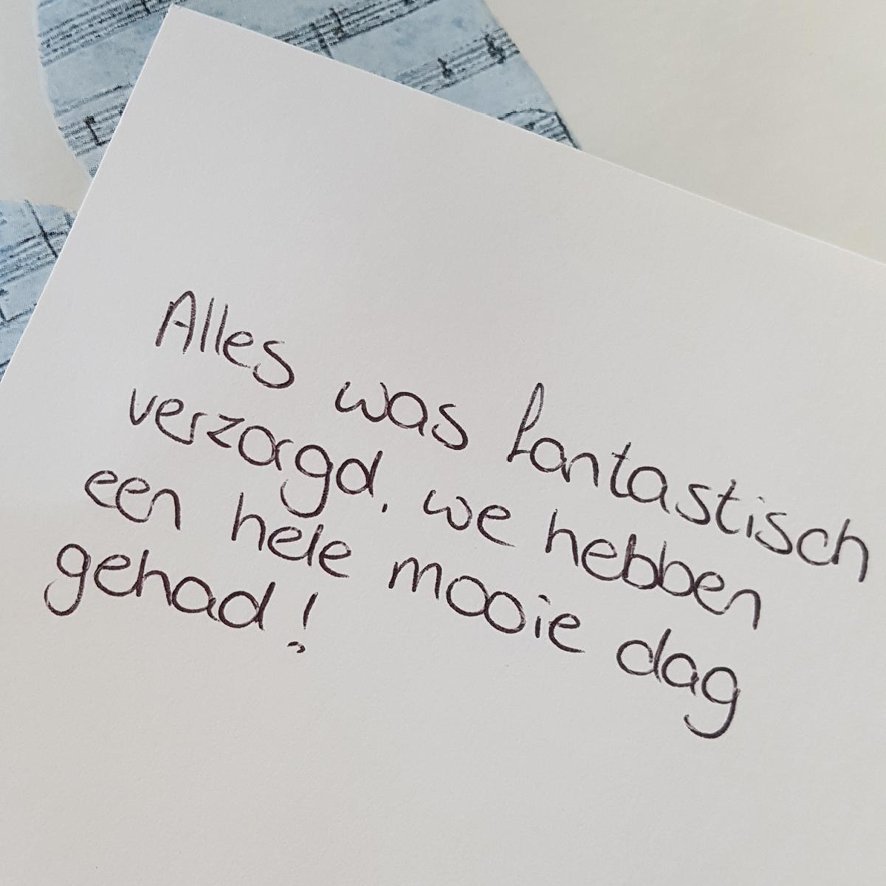 Alles was fantastisch
verzorgd, we hebben
een hele mooie dag
gehad!